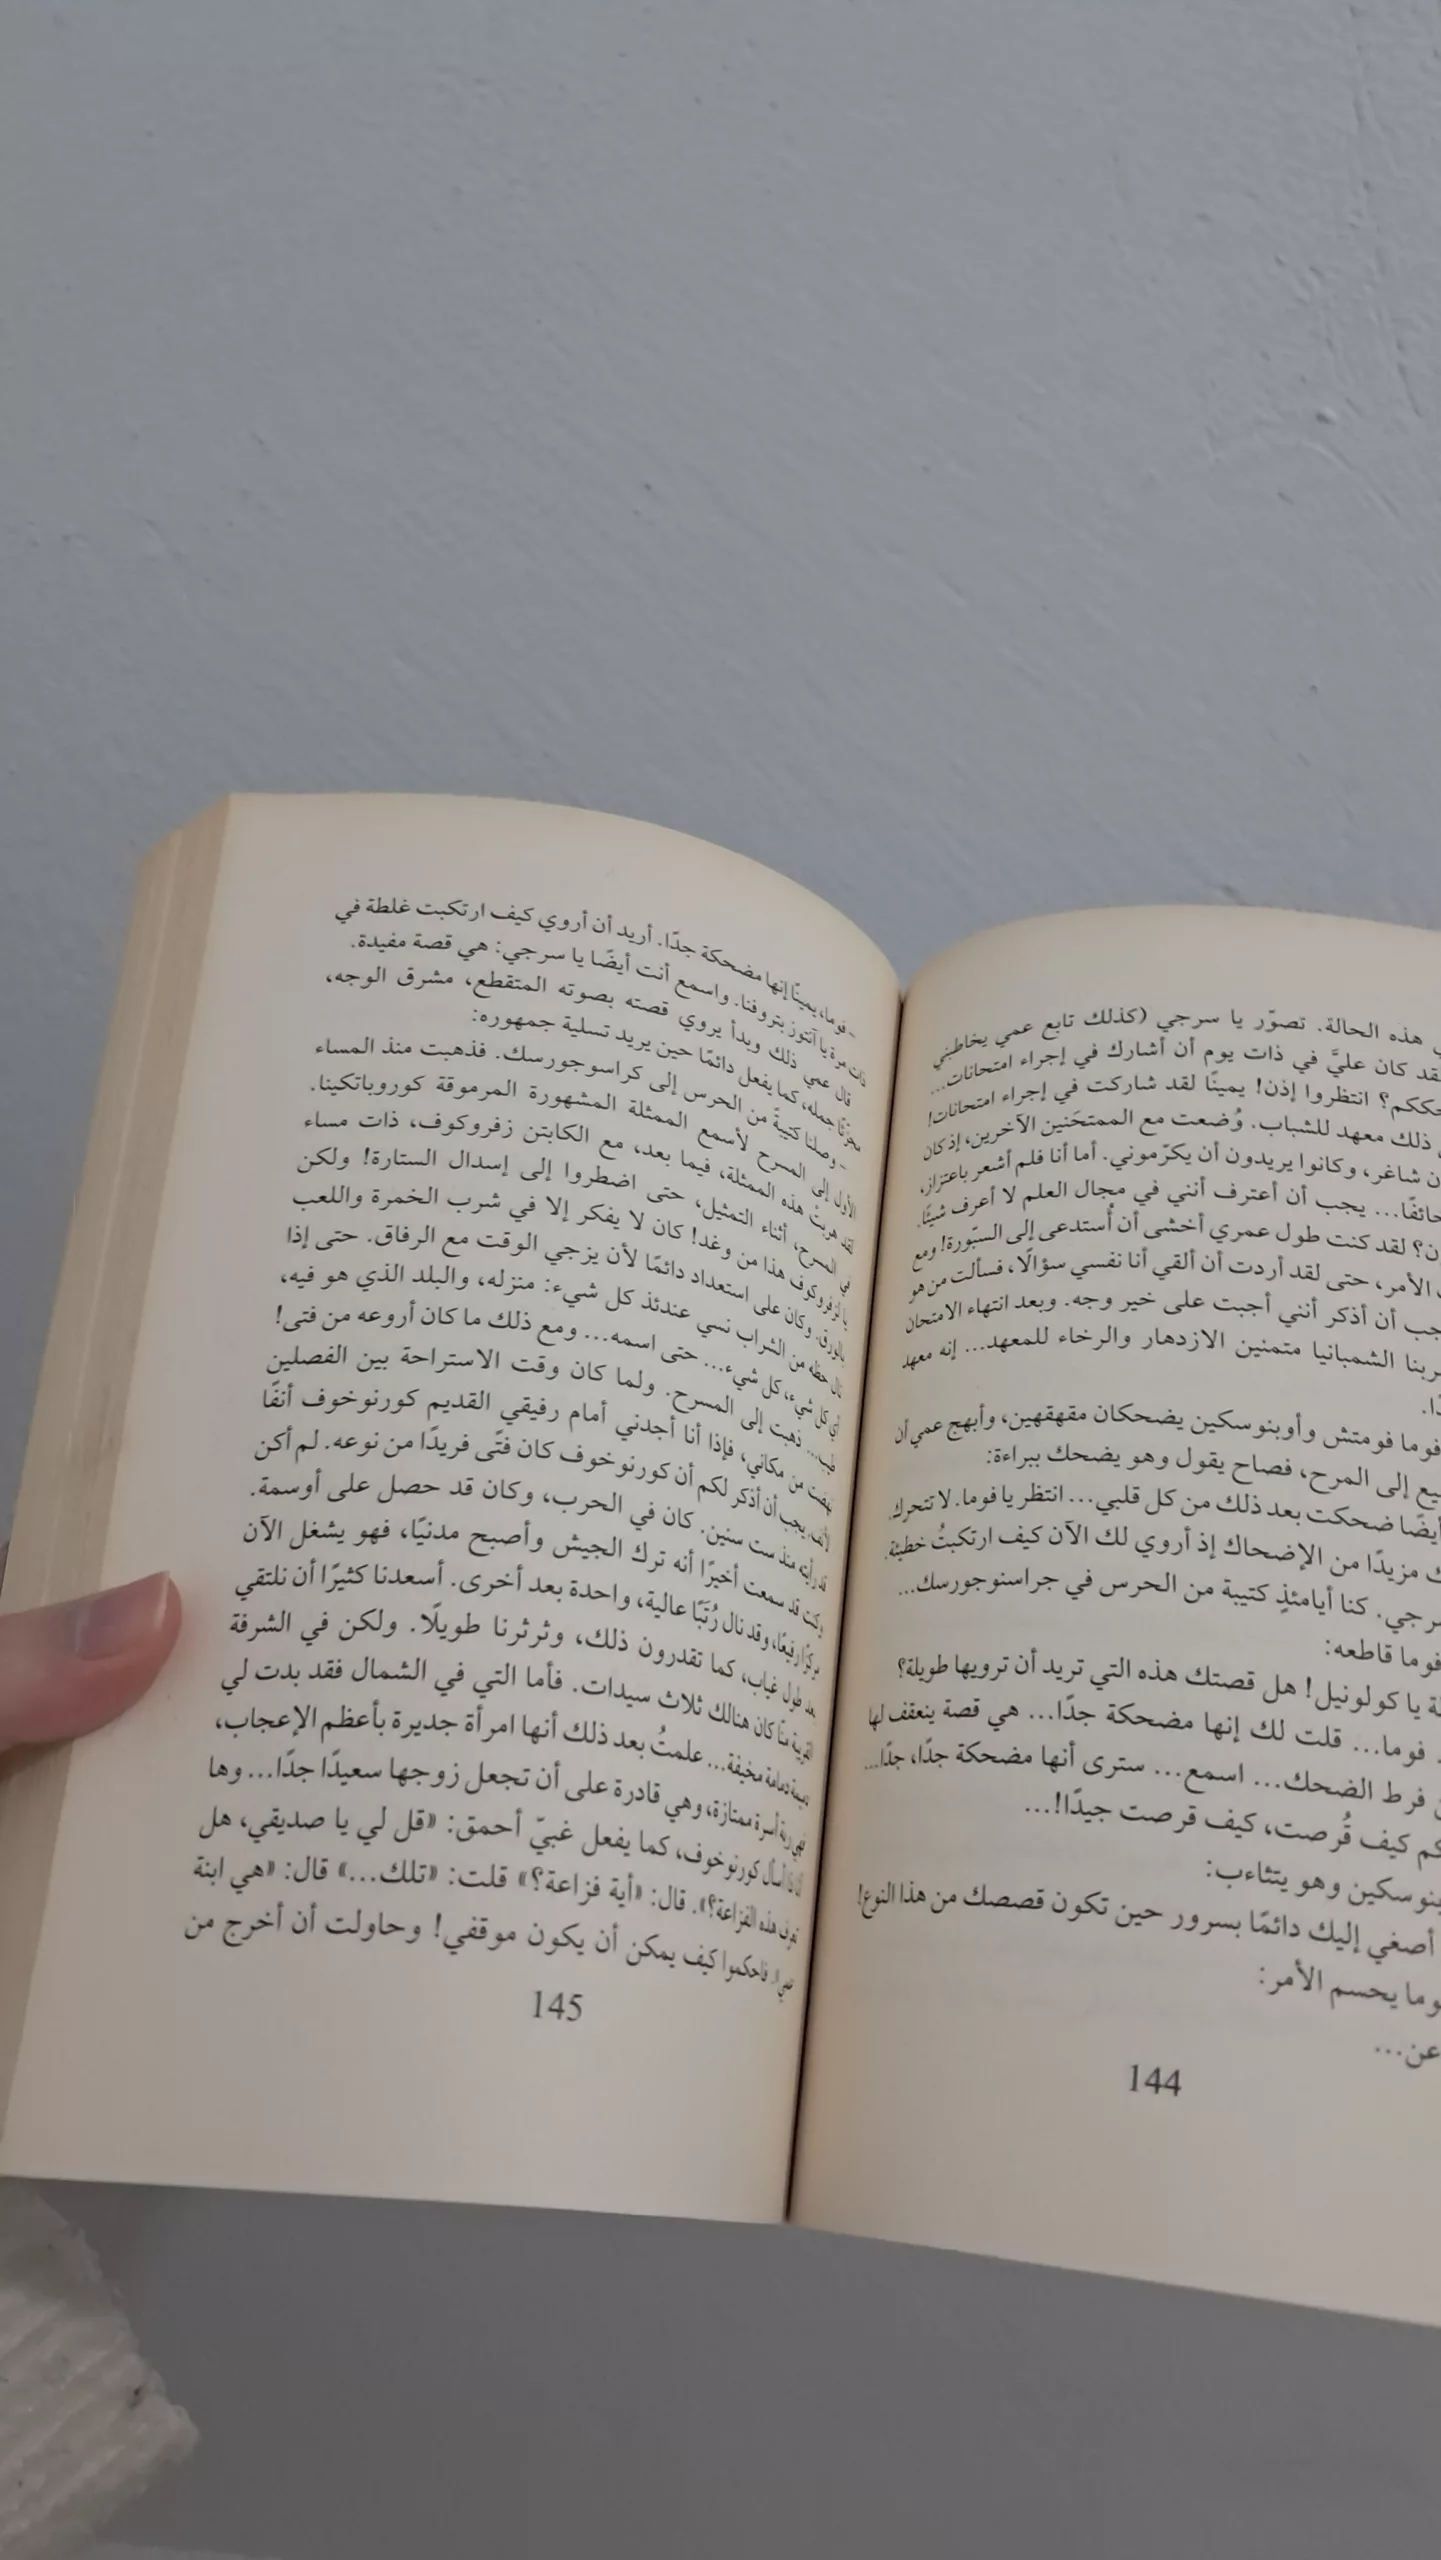 هذه الحالة. تصوّر يا سرجي (كذلك تابع عمي يخاطبني
قد كان عليَّ في ذات يوم أن أشارك في إجراء امتحانات...
حككم؟ انتظروا إذن! يمينًا لقد شاركت في إجراء امتحانات!
ذلك معهد للشباب. وُضعت مع الممتحَنين الآخرين، إذ كان
ن شاغر، وكانوا يريدون أن يكرّموني. أما أنا فلم أشعر باعتزاز،
خائفًا... يجب أن أعترف أنني في مجال العلم لا أعرف شيئًا.
ن؟ لقد كنت طول عمري أخشى أن أُستدعى إلى السبّورة! ومع
الأمر، حتى لقد أردت أن ألقي أنا نفسي سؤالًا، فسألت من هو
جب أن أذكر أنني أجبت على خير وجه. وبعد انتهاء الامتحان
ربنا الشمبانيا متمنين الازدهار والرخاء للمعهد... إنه معهد
دًا.
فوما فومتش وأوبنوسكين يضحكان مقهقهين، وأبهج عمي أن
يع إلى المرح، فصاح يقول وهو يضحك ببراءة:
أيضًا ضحكت بعد ذلك من كل قلبي... انتظر يا فوما. لا تتحرك.
ك مزيدًا من الإضحاك إذ أروي لك الآن كيف ارتكبتُ خطيئة.
رجي. كنا أيامئذٍ كتيبة من الحرس في جراسنوجورسك...
فوما قاطعه:
ة يا كولونيل! هل قصتك هذه التي تريد أن ترويها طويلة؟
فوما... قلت لك إنها مضحكة جدًا... هي قصة ينعقف لها
ن فرط الضحك... اسمع... سترى أنها مضحكة جدًا، جدًا...
كم كيف قُرصت، كيف قرصت جيدًا!...
بنوسكين وهو يتثاءب:
أصغي إليك دائمًا بسرور حين تكون قصصك من هذا النوع!
وما يحسم الأمر:
عن...
144
- فوما، يمينًا إنها مضحكة جدًا. أريد أن أروي كيف ارتكبت غلطة في
ذات مرة يا آنتوز بتروفنا. واسمع أنت أيضًا يا سرجي: هي قصة مفيدة.
قال عمي ذلك وبدأ يروي قصته بصوته المتقطع، مشرق الوجه،
مجزئًا جمله، كما يفعل دائمًا حين يريد تسلية جمهوره:
- وصلنا كتيبةً من الحرس إلى كراسوجورسك. فذهبت منذ المساء
الأول إلى المسرح لأسمع الممثلة المشهورة المرموقة كوروباتكينا.
لقد هربتْ هذه الممثلة، فيما بعد، مع الكابتن زفروكوف، ذات مساء
في المسرح، أثناء التمثيل، حتى اضطروا إلى إسدال الستارة! ولكن
يا لزفروكوف هذا من وغد! كان لا يفكر إلا في شرب الخمرة واللعب
بالورق. وكان على استعداد دائمًا لأن يزجي الوقت مع الرفاق. حتى إذا
نال حظه من الشراب نسي عندئذ كل شيء: منزله، والبلد الذي هو فيه،
أي كل شيء، كل شيء... حتى اسمه... ومع ذلك ما كان أروعه من فتى!
طيب... ذهبت إلى المسرح. ولما كان وقت الاستراحة بين الفصلين
نهضت من مكاني، فإذا أنا أجدني أمام رفيقي القديم كورنوخوف أنفًا
لأنف. يجب أن أذكر لكم أن كورنوخوف كان فتًى فريدًا من نوعه. لم أكن
قد رأيته منذ ست سنين. كان في الحرب، وكان قد حصل على أوسمة.
وكنت قد سمعت أخيرًا أنه ترك الجيش وأصبح مدنيًا، فهو يشغل الآن
مركزًا رفيعًا، وقد نال رُتَبًا عالية، واحدة بعد أخرى. أسعدنا كثيرًا أن نلتقي
بعد طول غياب، كما تقدرون ذلك، وثرثرنا طويلًا. ولكن في الشرفة
القريبة منّا كان هنالك ثلاث سيدات. فأما التي في الشمال فقد بدت لي
دميمة دمامة مخيفة... علمتُ بعد ذلك أنها امرأة جديرة بأعظم الإعجاب،
فهي ربة أسرة ممتازة، وهي قادرة على أن تجعل زوجها سعيدًا جدًا... وها
أنا ذا أسأل كورنوخوف، كما يفعل غبيّ أحمق: «قل لي يا صديقي، هل
تعرف هذه الفزاعة؟». قال: «أية فزاعة؟» قلت: «تلك...» قال: «هي ابنة
عمي». فاحكموا كيف يمكن أن يكون موقفي! وحاولت أن أخرج من
145